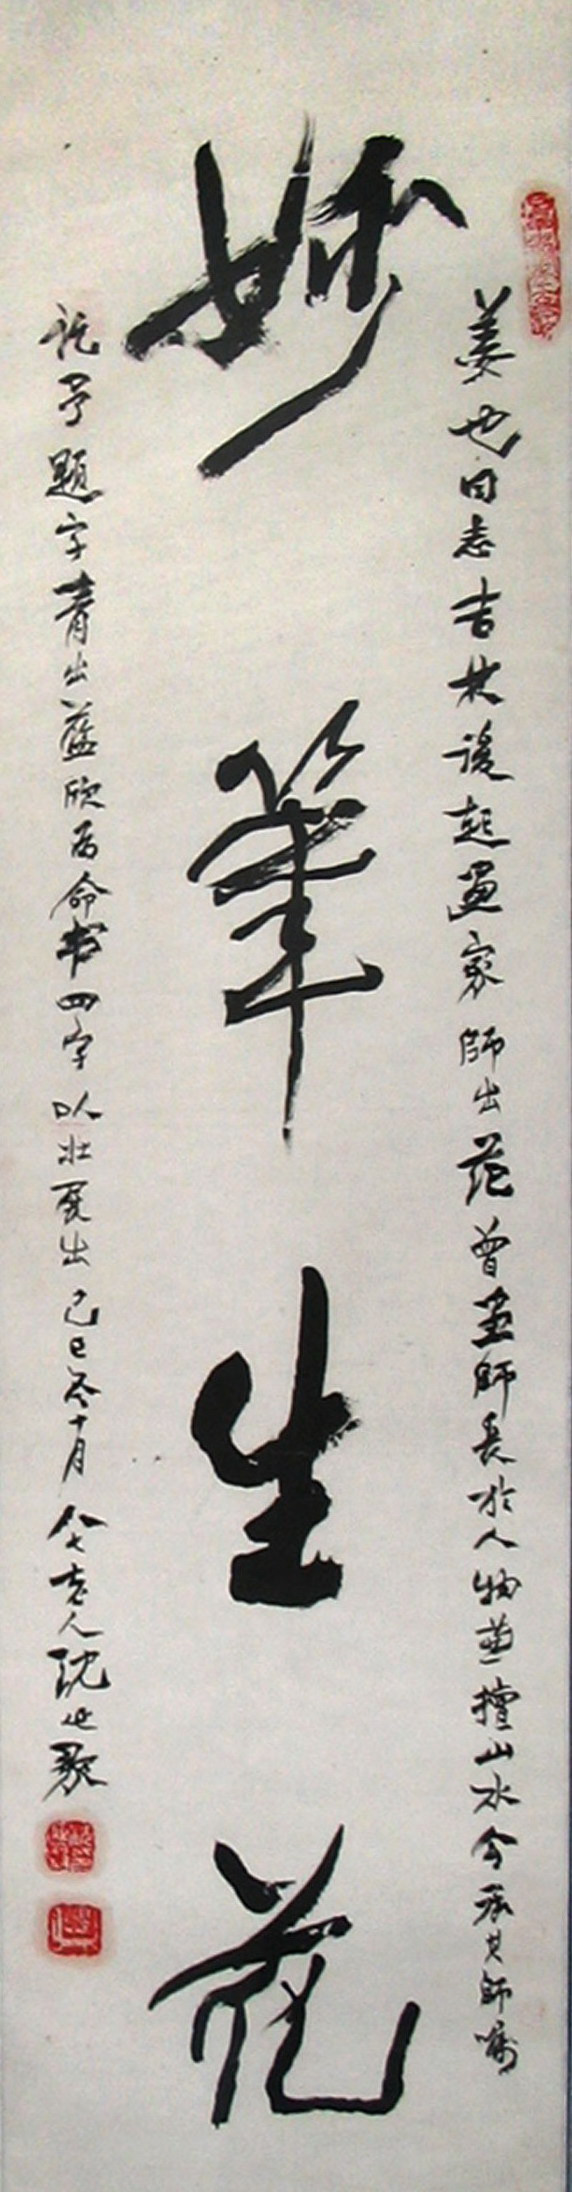 姜也同志吉林後起画家師出范曾画師長於人物兼擅山水今承其師嘱
妙筆生花
託予題字青出藍欣為命书四字以壮展出己巳冬十月仝七老人沈延毅